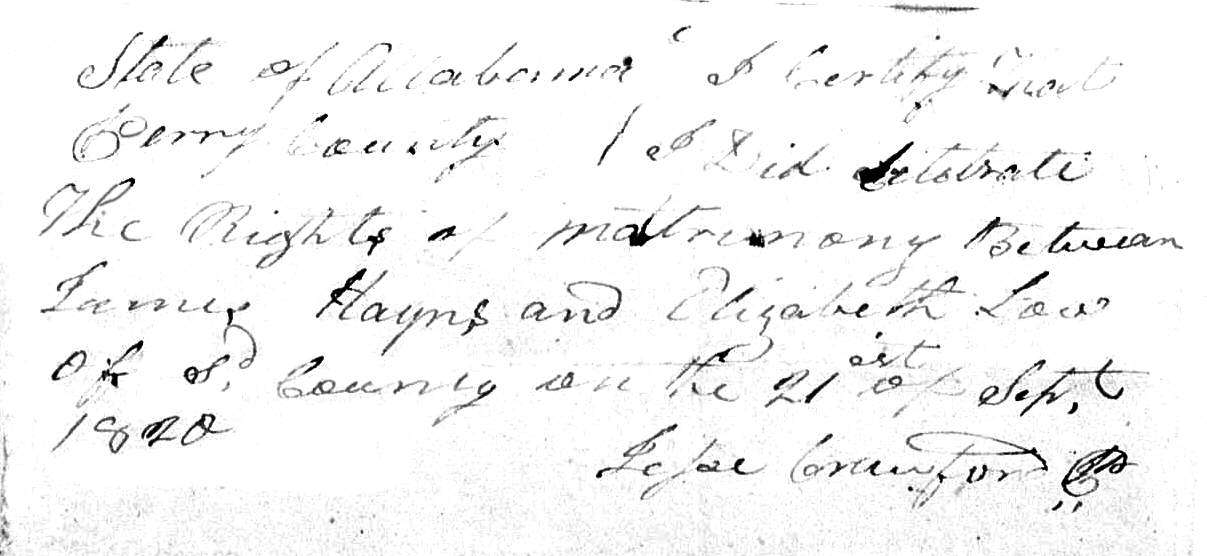 State of Allabama I Certify That
Perry County I Did Celebrate
The Rights of matrimony Between
James Hayns and Elizabeth Low
of Sd. County on the 21st of Sept.
1820
Jesse Crawford